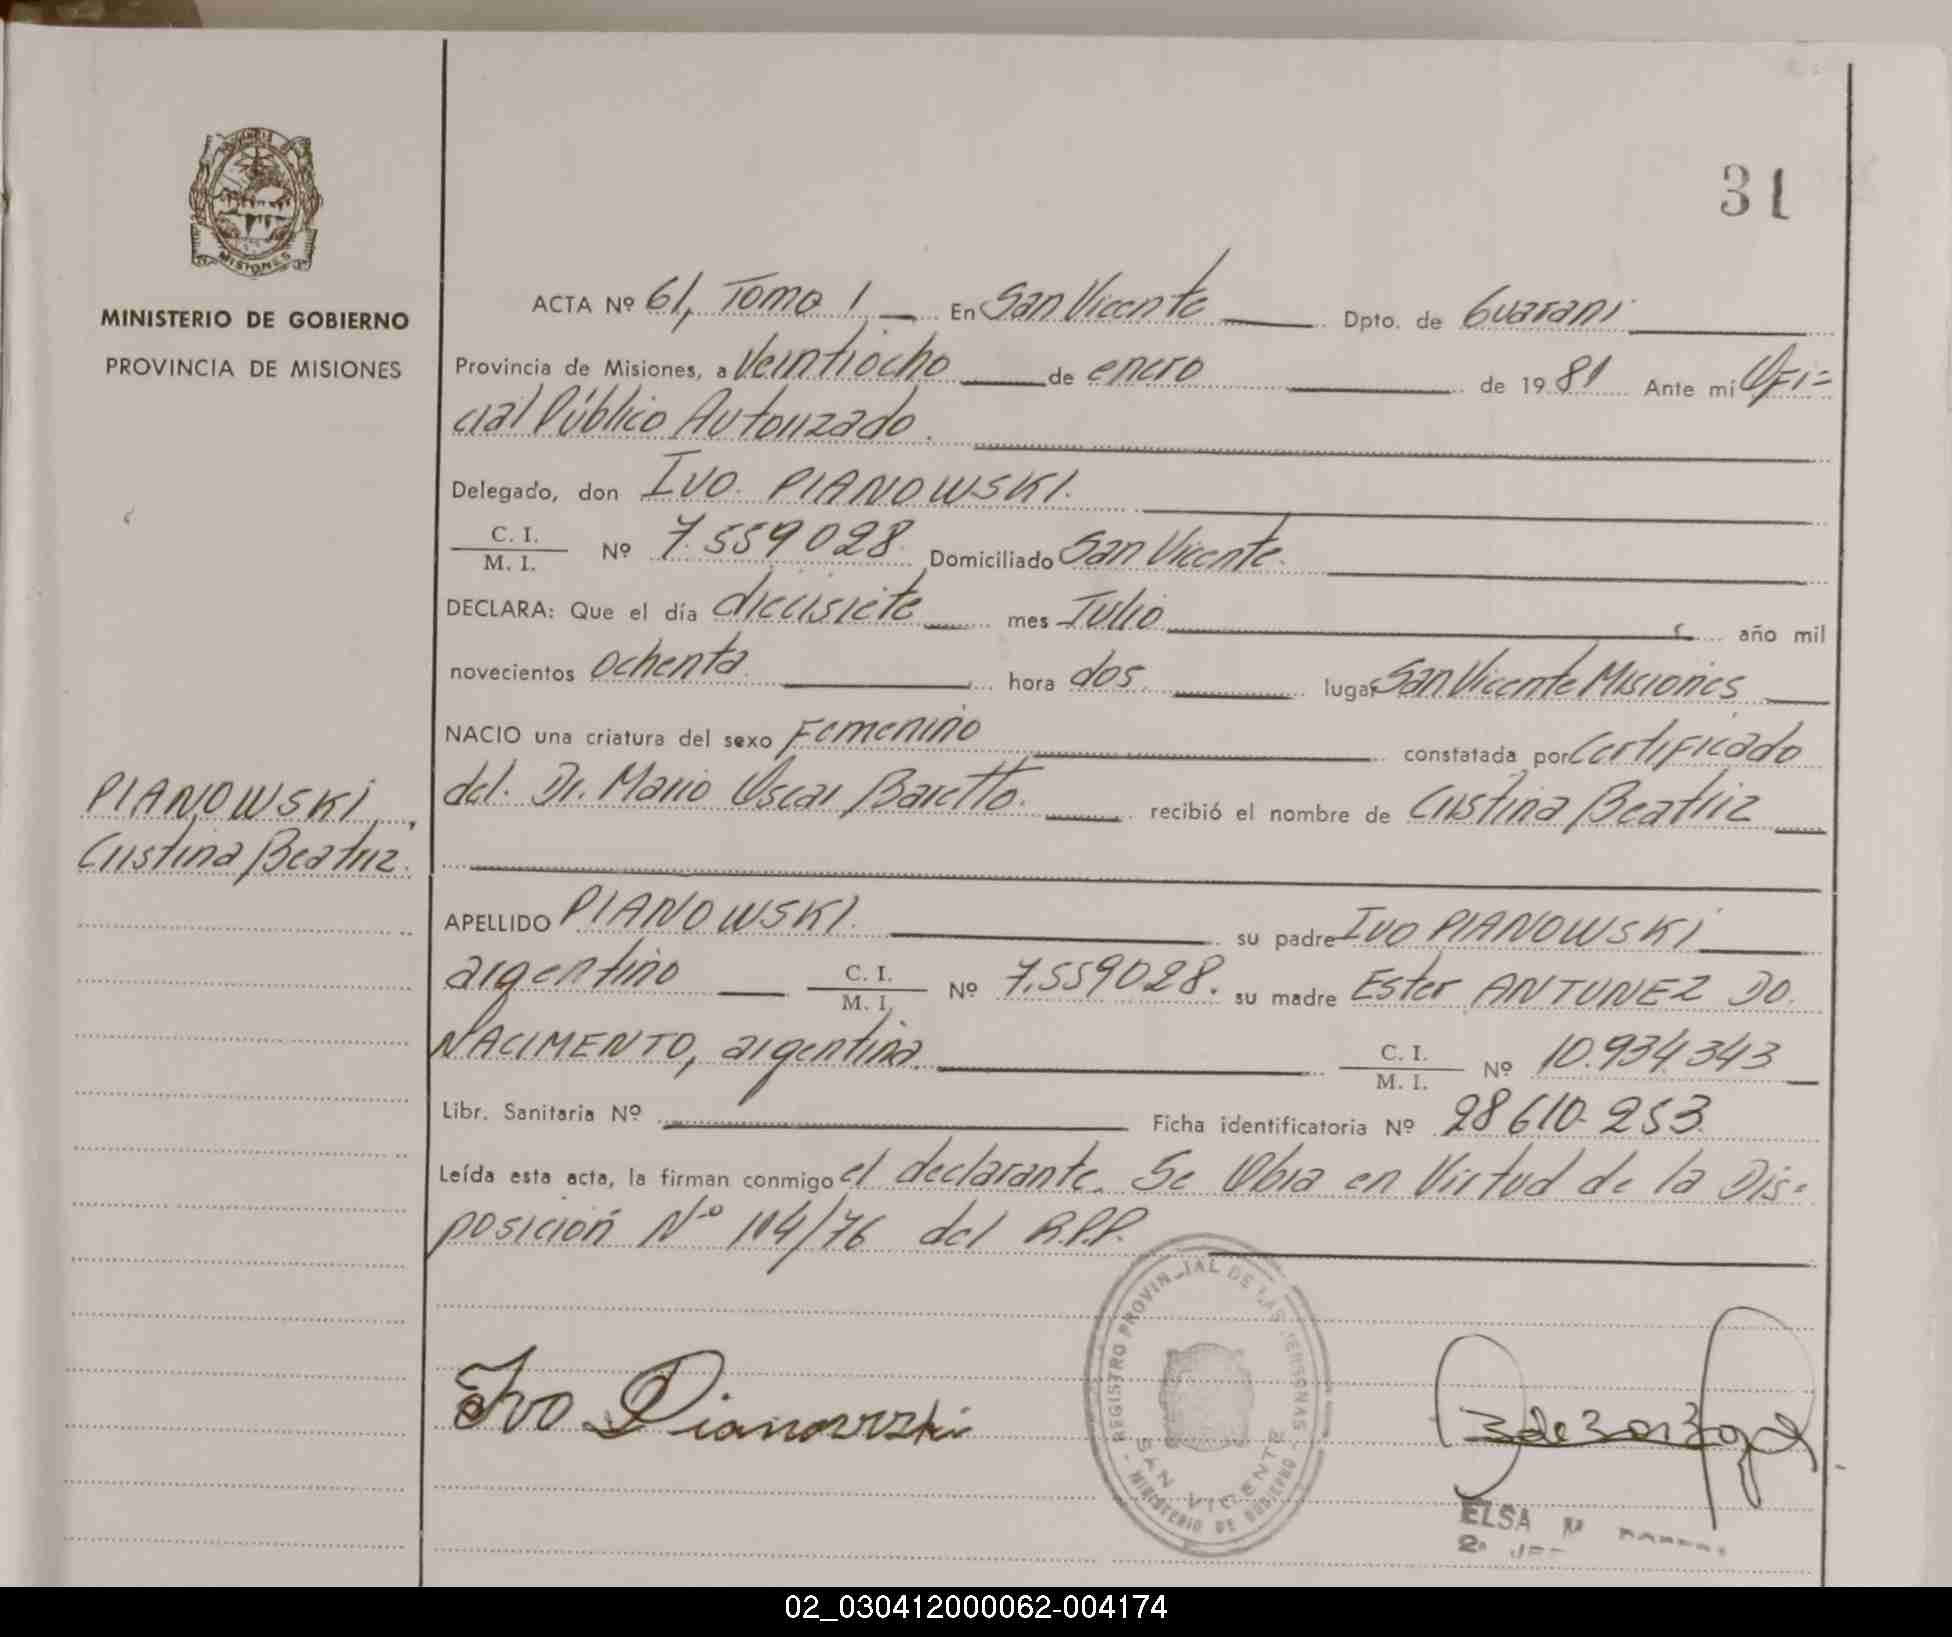 31
MISIONES
MINISTERIO DE GOBIERNO
PROVINCIA DE MISIONES
ACTA Nº 61, Tomo 1 En San Vicente Dpto. de Guarani
Provincia de Misiones, a Veintiocho de enero de 1981 Ante mí Ofi=
cial Público Autorizado.
Delegado, don IVO PIANOWSKI.
C. I.
M. I. Nº 7.559028 Domiciliado San Vicente.
DECLARA: Que el día diecisiete mes Julio año mil
novecientos ochenta hora dos lugar San Vicente Misiones
NACIO una criatura del sexo Femenino constatada por Certificado
del. Dr. Mario Oscar Baretto. recibió el nombre de Cristina Beatriz
PIANOWSKI,
Cristina Beatriz.
APELLIDO PIANOWSKI. su padre Ivo PIANOWSKI
argentino C. I.
M. I. Nº 7.559028. su madre Ester ANTUNEZ DO
NACIMENTO, argentina. C. I.
M. I. Nº 10.934.343
Libr. Sanitaria Nº Ficha identificatoria Nº 28610.253
Leída esta acta, la firman conmigo el declarante. Se Obra en Virtud de la Dis=
posición Nº 104/76 del R.P.P.
REGISTRO PROVINCIAL DE LAS PERSONAS
SAN VICENTE
MINISTERIO DE GOBIERNO
Ivo Pianowski
ELSA
2º
02_030412000062-004174